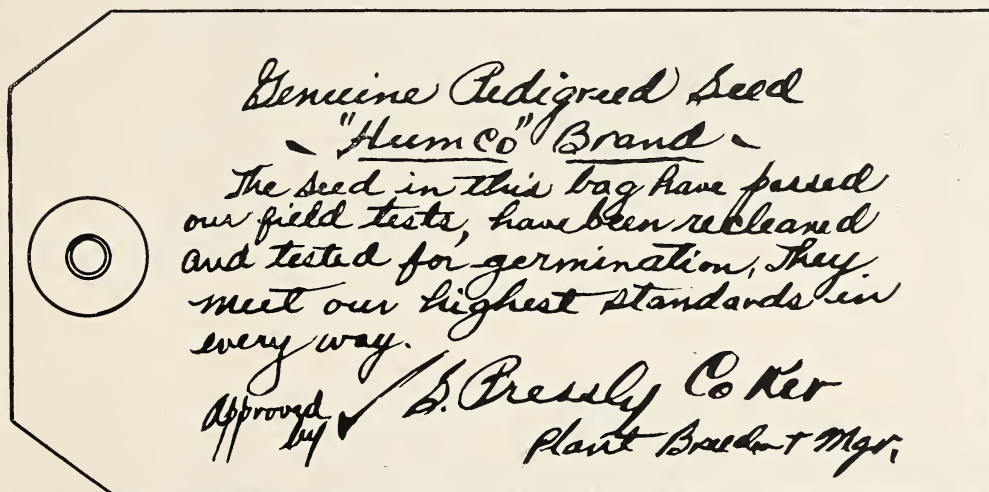 Genuine Pedigreed Seed
"Humco" Brand
The seed in this bag have passed
our field tests, have been recleaned
and tested for germination. They
meet our highest standards in
every way.
Approved by ✓ S. Pressly Coker
Plant Breeder + Mgr.